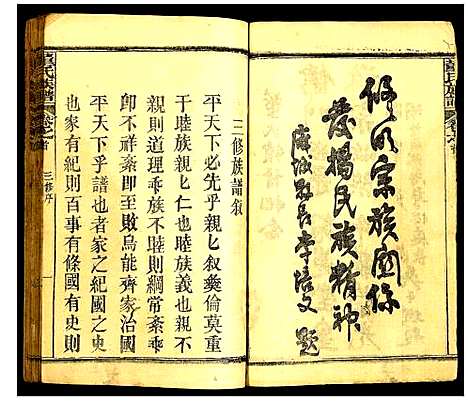 修明宗族關係
發揚民族精神
麻城縣長李培文題
三修族譜敘
平天下必先乎親乀敘彝倫莫重
于睦族親乀仁也睦族義也親不
親則道理乖族不睦則綱常紊乖
卽不祥紊即至敗烏能齊家治國
平天下乎譜也者家之紀國之史
也家有紀則百事有條國有史則
三修序
氏族譜
卷之首